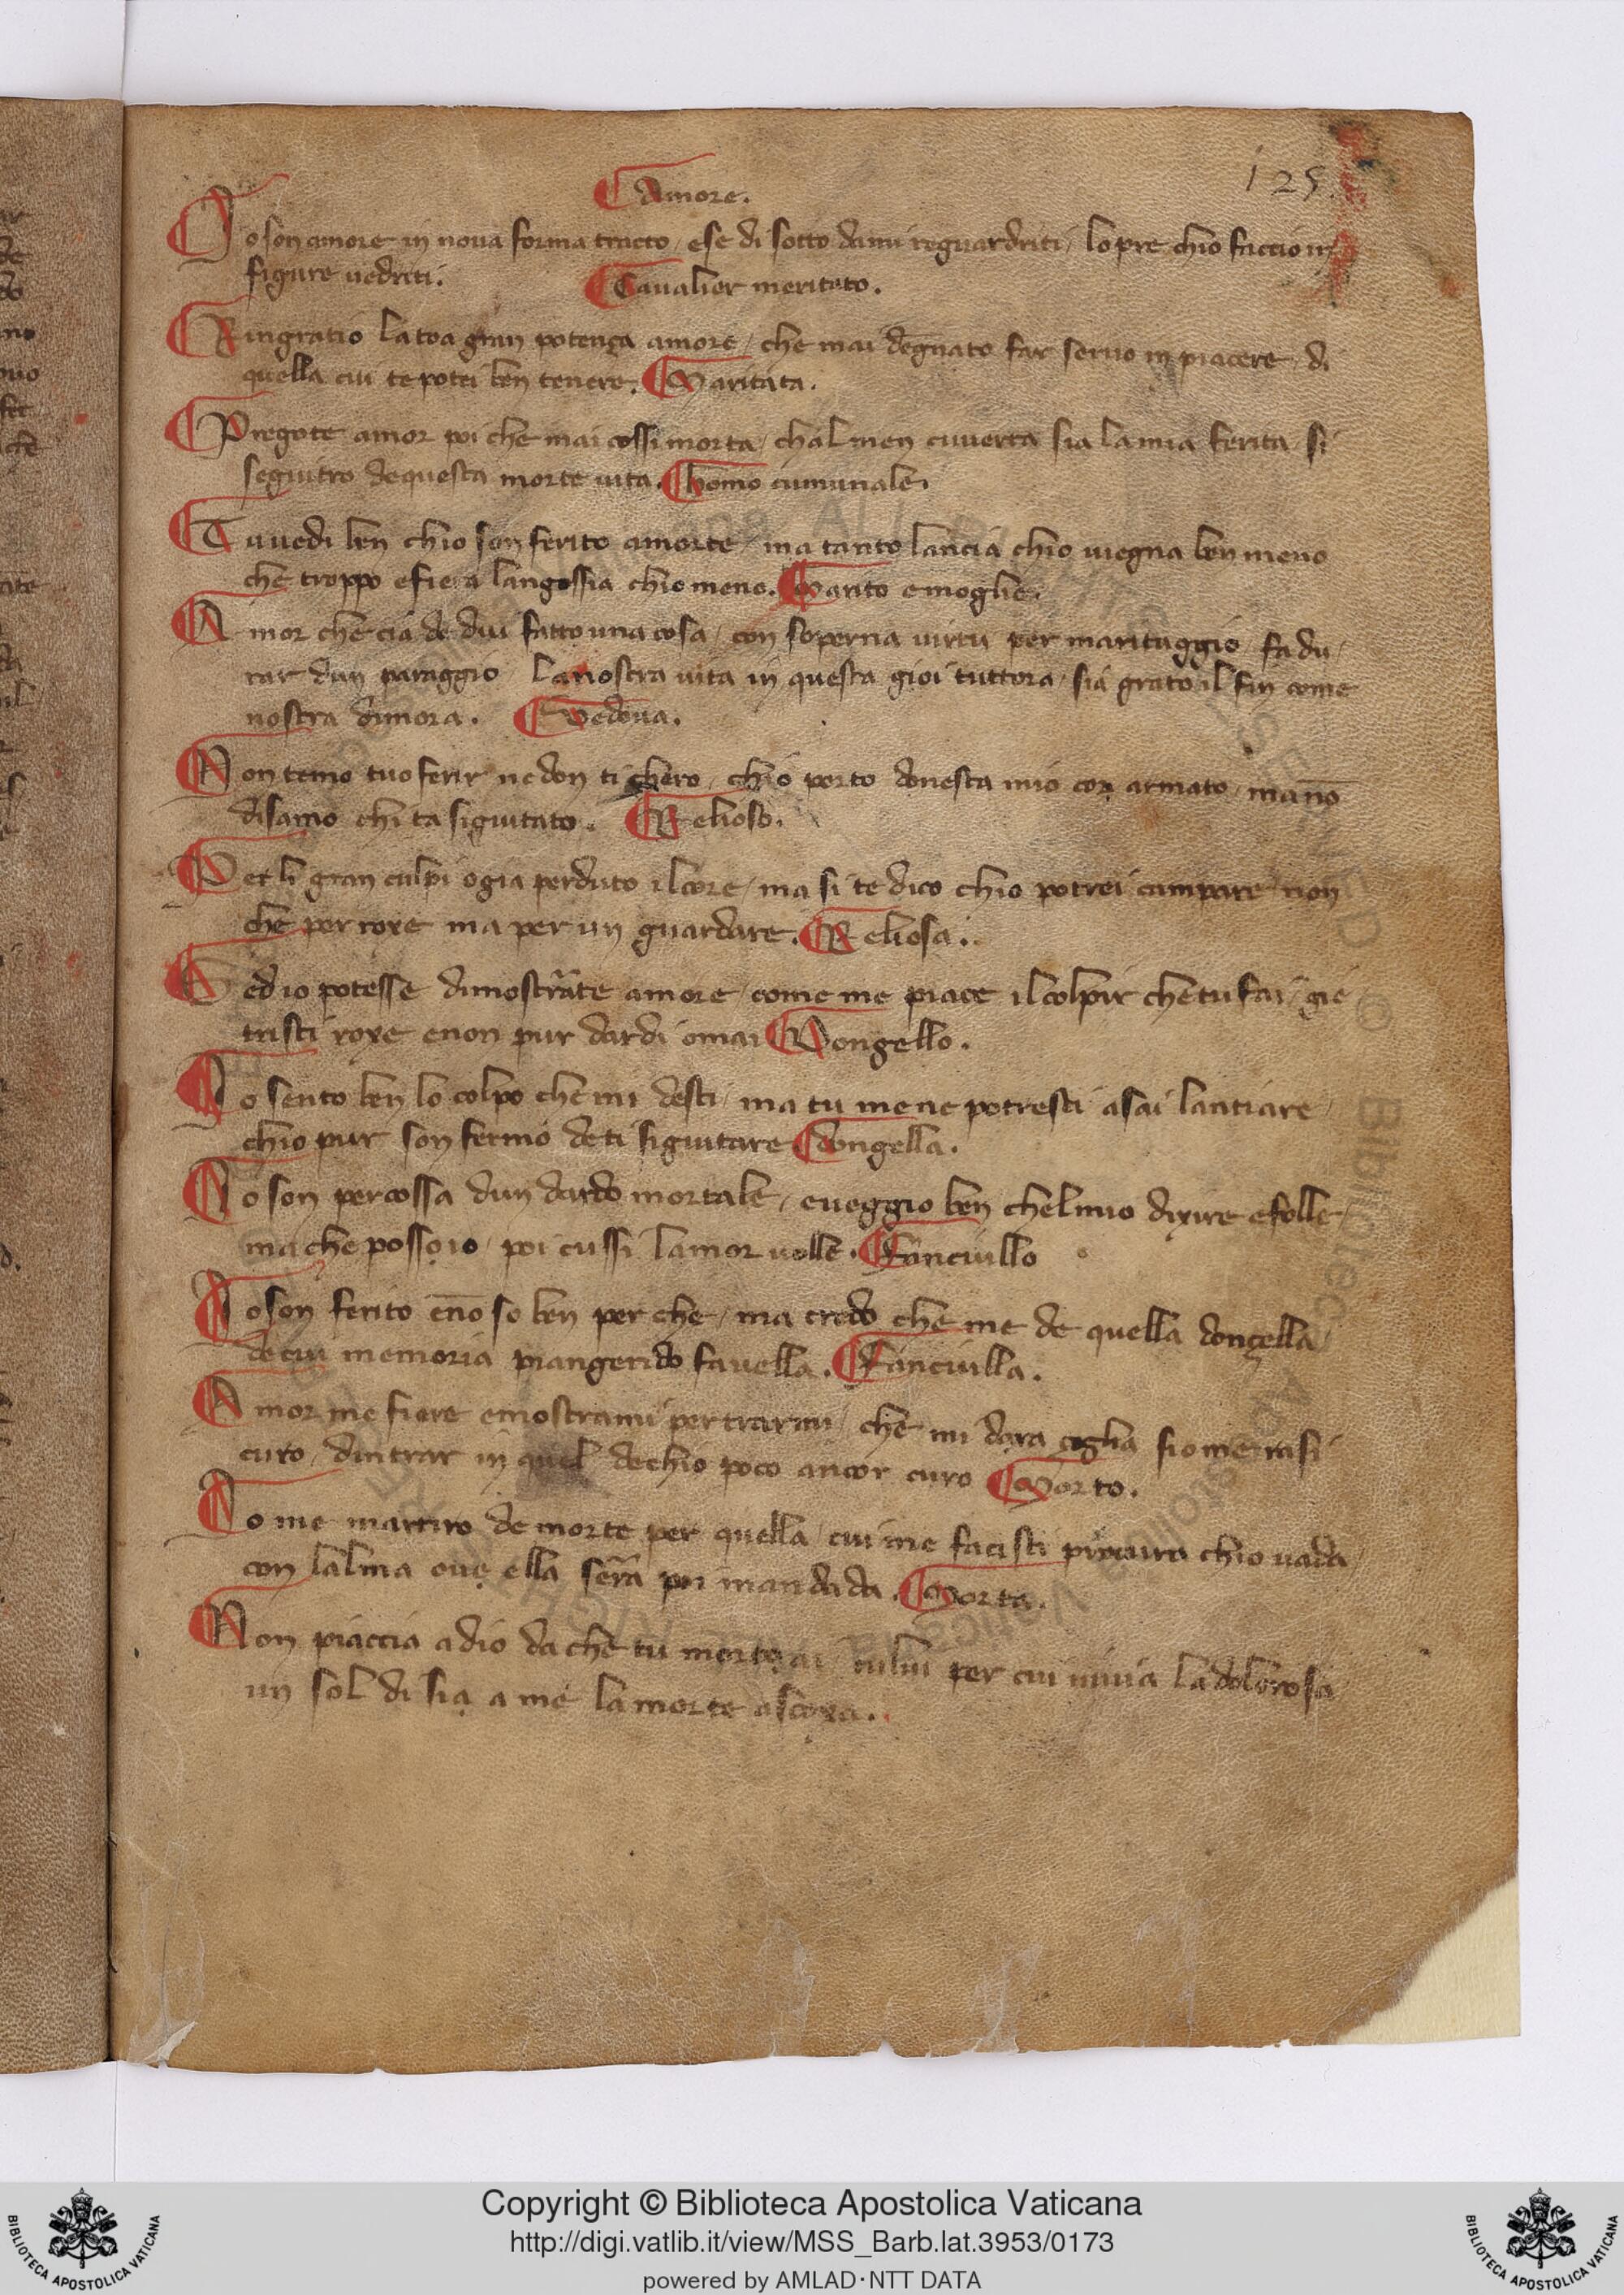 125
Amore.
Io son amore in nova forma tracto / ese di sotto dami reguardriti / lopre chio faccio in
figure vedriti. Cavalier meritato.
Ringratio la toa gran potença amore / che mai degnato far servo in piacere di
quella cui te potei ben tenere. Maritata.
Pregote amor poi che mai cossi morta / chal men cuverta sia la mia ferita si
seguitro de questa morte vita. homo cumunale.
Tu vedi ben chio son ferito a morte / ma tanto lancia chio vegna ben meno
che troppo e fiera langossia chio meno. Marito e moglie.
Amor che cia de dui fatto una cosa / con soperna virtu per maritaggio / fa du
rar dun paraggio / la nostra vita in questa gioi tuttora / sia grato il fin come
nostra dimora. Vedova.
Non temo tuo ferir ne don ti chero / chio porto donesta mio cor armato / ma nō
disamo chi ta siguitato. Relioso.
Per li gran culpi ogia perduto il core / ma si te dico chio potrei campare non
che per roxe ma per un guardare. Reliosa.
Ved io potesse dimostrate amore / come me piace il colpir che tu fai / gie
tristi roxe e non pur dardi omai Dongello.
Io sento ben lo colpo che mi desti / ma tu me ne potresti asai lantiare /
chio pur son fermo de ti siguitare dongella.
Io son percossa dun dardo mortale / e veggio ben chel mio dixire e folle /
ma che poss io / poi cussi lamor volle. Fanciullo
Io son ferito e nō so ben per che / ma credo che me de quella donçella /
de cui memoria piangendo favella. Fanciulla.
Amor me fiere e mostrami per trarmi / che mi dara çoglia si o me rasi
curo / dintrar in quel de chio poco ancor curo Morto.
Io me martiro de morte per quella / cui me facisti procura chio vada
con lalma ove ella sera poi mandada. Morta.
Non piaccia a dio da che tu morto ai / cului per cui vivia la dolorosa
un sol di sia a me la morte ascoxa.
Copyright © Biblioteca Apostolica Vaticana
http://digi.vatlib.it/view/MSS_Barb.lat.3953/0173
powered by AMLAD·NTT DATA
BIBLIOTECA APOSTOLICA VATICANA
BIBLIOTECA APOSTOLICA VATICANA